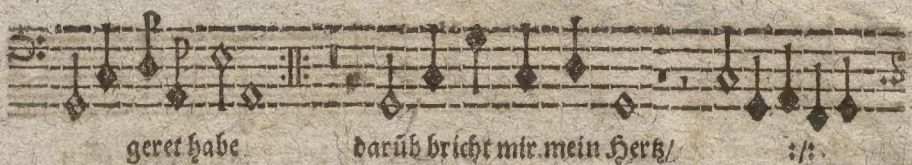 geret habe darüb bricht mir mein Hertz/ :/: